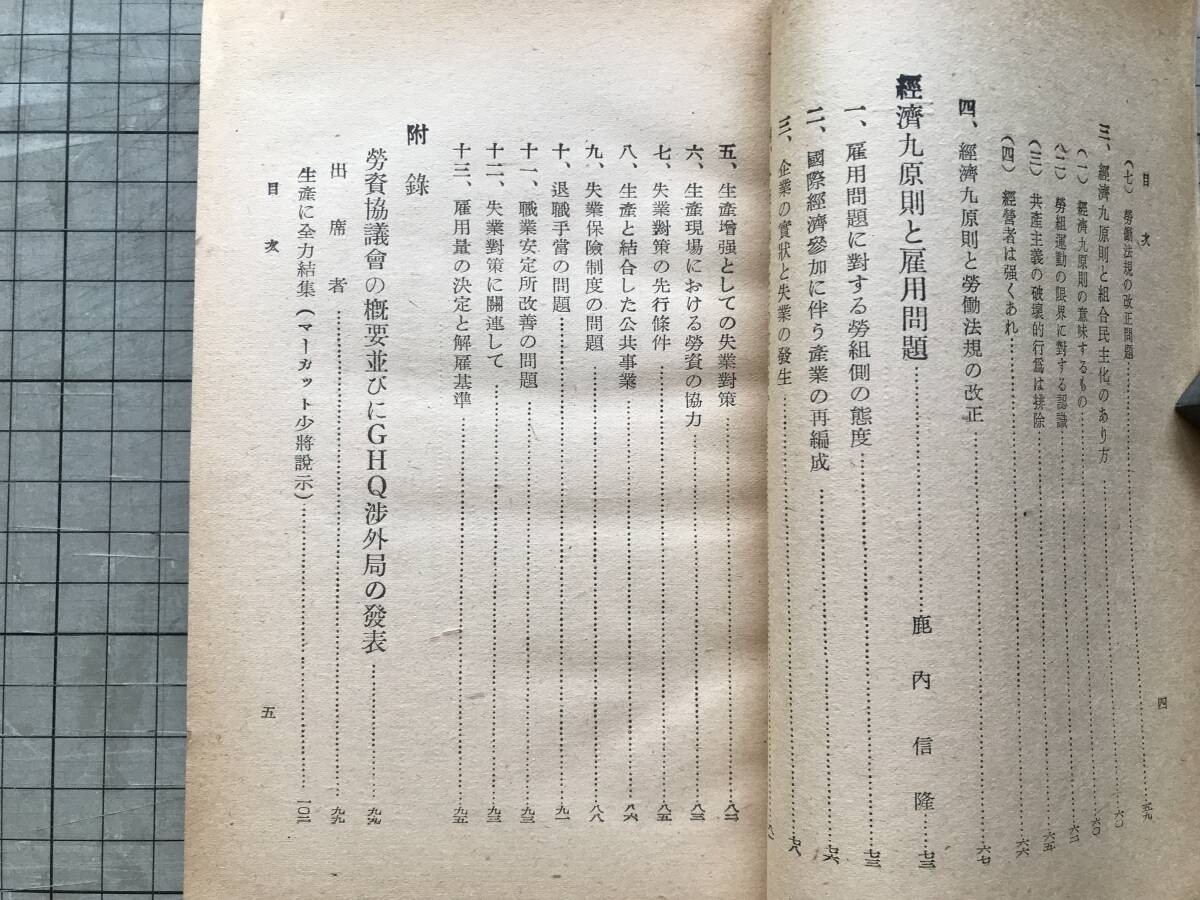 目次
(七) 勞働法規の改正問題……五九
三、經濟九原則と組合民主化のあり方……六〇
(一) 經濟九原則の意味するもの……六〇
(二) 勞組運動の限界に對する認識……六二
(三) 共產主義の破壞的行爲は排除……六五
(四) 經營者は强くあれ……六六
四、經濟九原則と勞働法規の改正……六七
經濟九原則と雇用問題……鹿內信隆……七三
一、雇用問題に對する勞組側の態度……七三
二、國際經濟參加に伴う產業の再編成……七六
三、企業の實狀と失業の發生……七八
四
五、生產增强としての失業對策……八二
六、生產現場における勞資の協力……八三
七、失業對策の先行條件……八五
八、生產と結合した公共事業……八六
九、失業保險制度の問題……八八
十、退職手當の問題……九一
十一、職業安定所改善の問題……九三
十二、失業對策に關連して……九三
十三、雇用量の決定と解雇基準……九五
附錄
勞資協議會の槪要並びにGHQ涉外局の發表……九九
出席者……九九
生產に全力結集(マーカット少將說示)……一〇二
目次
五